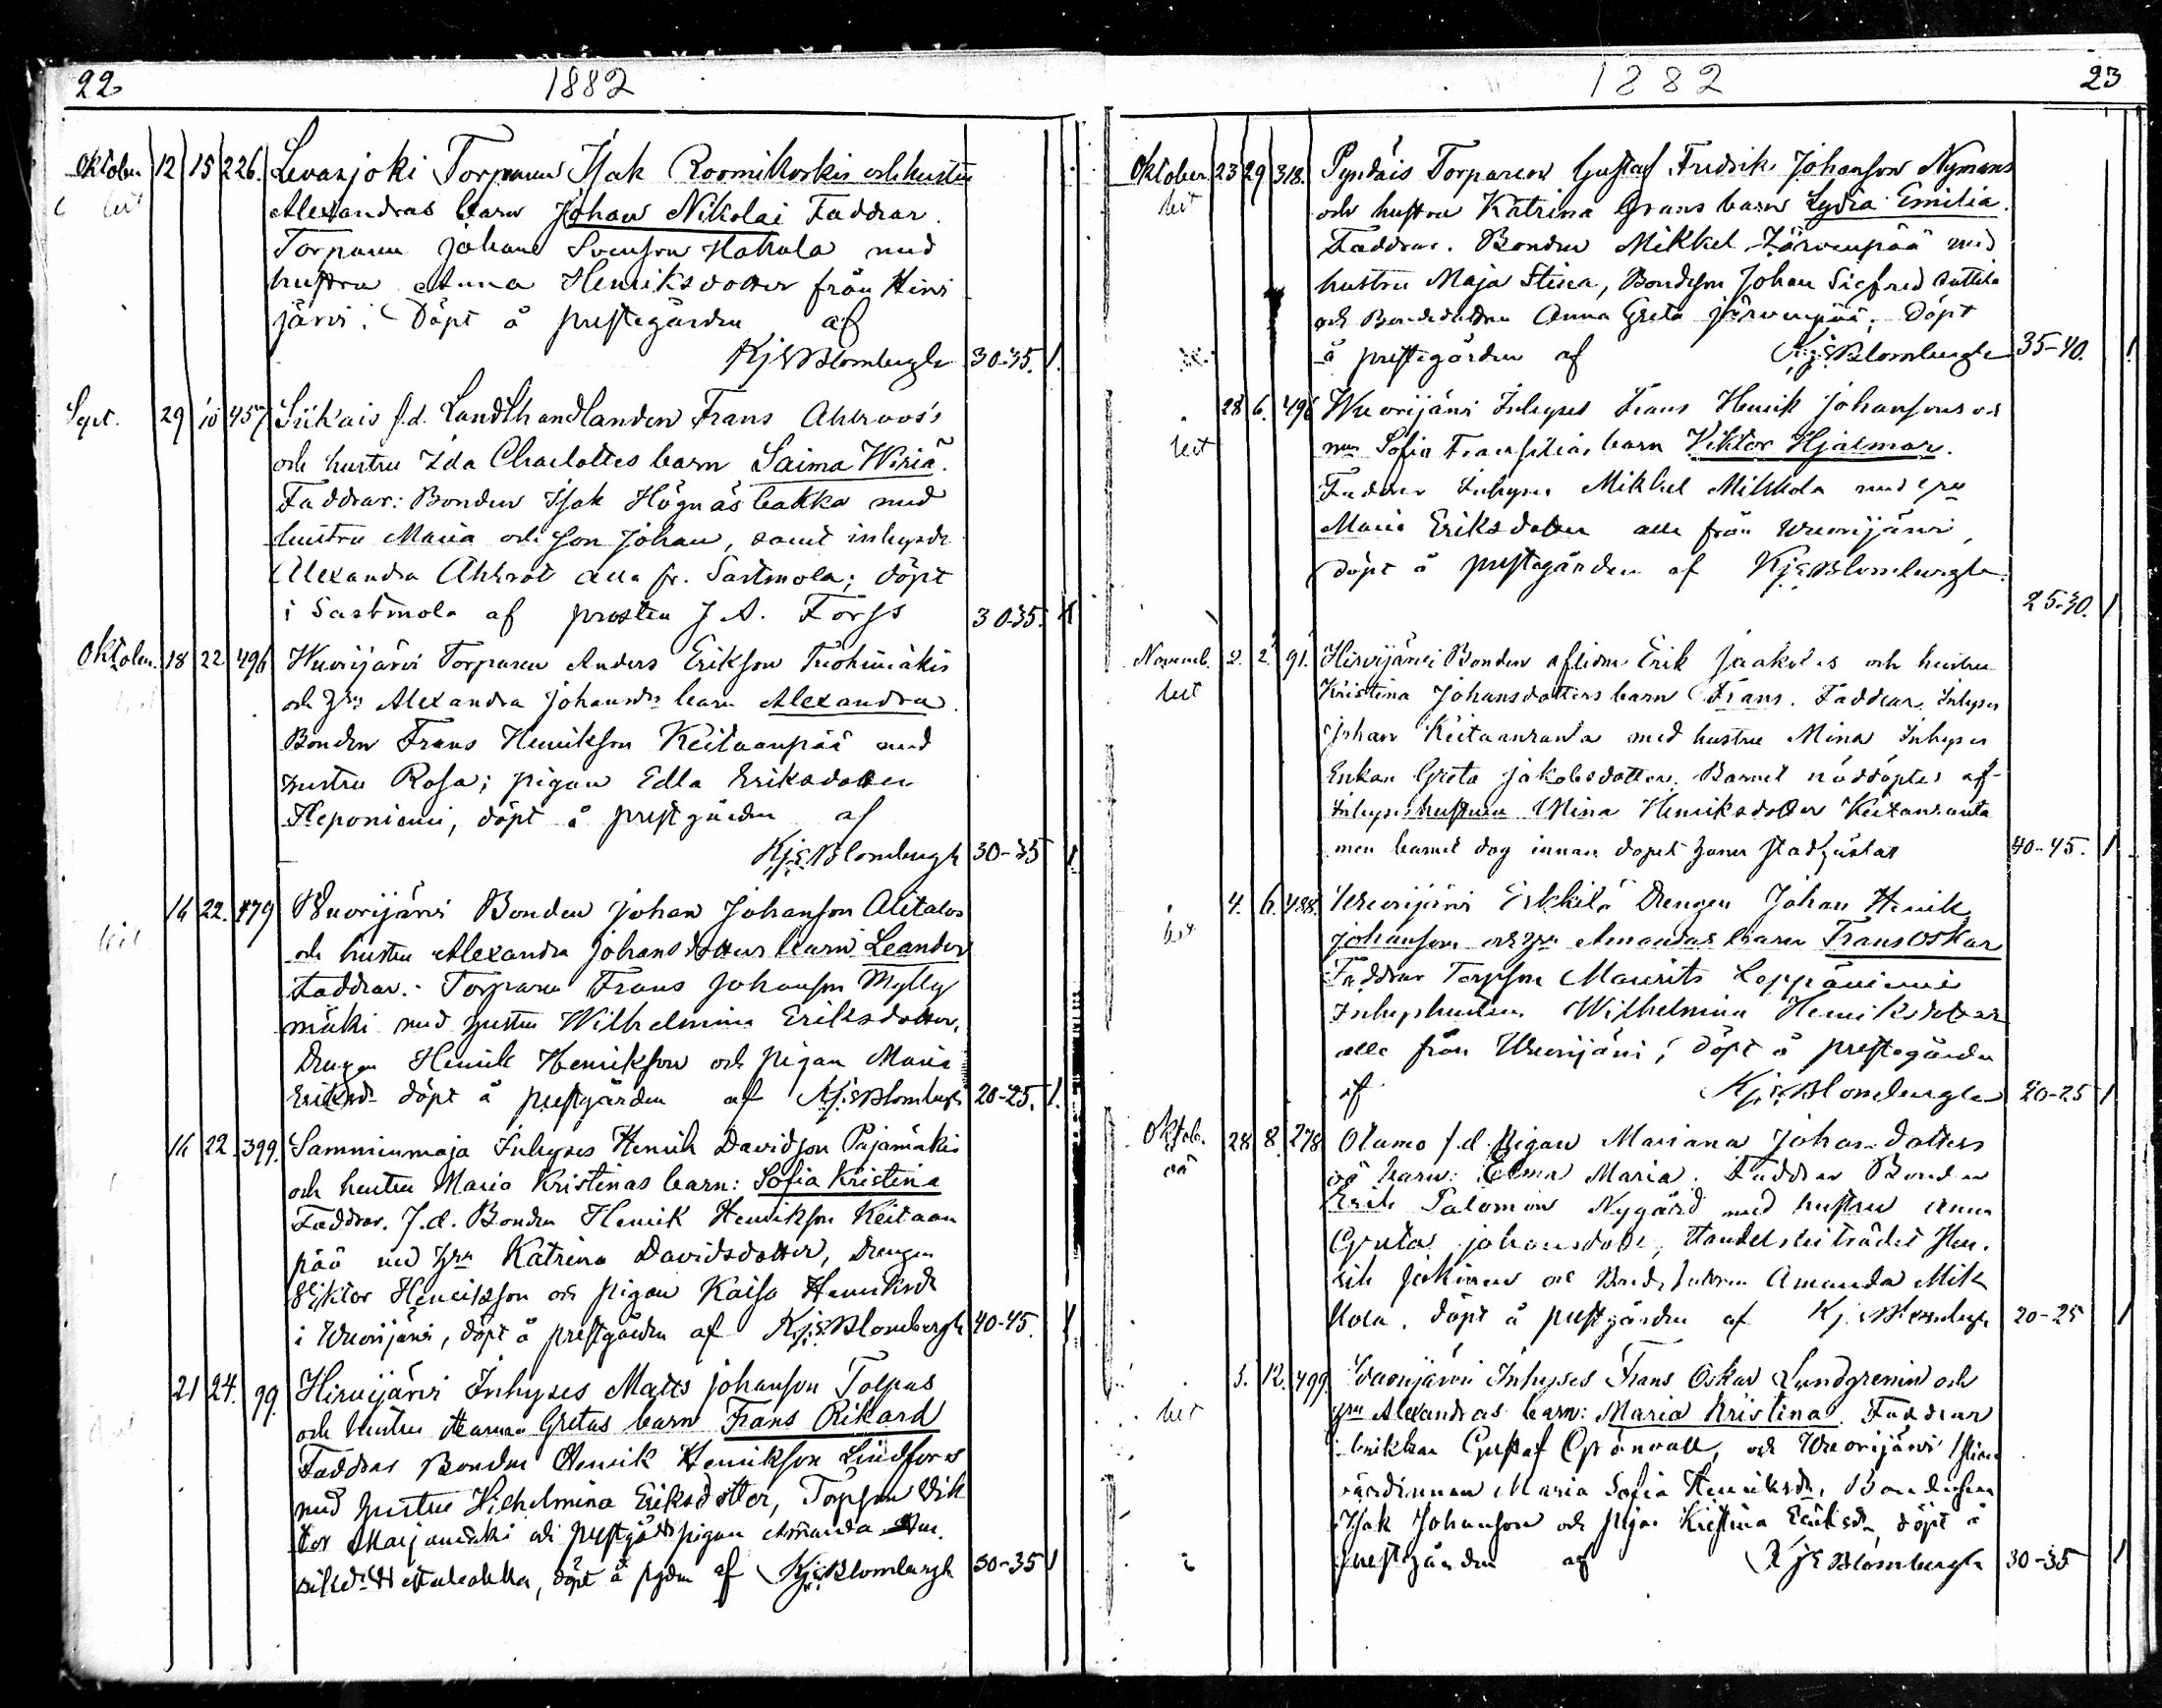 22. 1882
Oktober 12 15 226. Levasjoki Torparen Isak Roomikoskis och hustru
Alexandras barn Johan Nikolai Faddrar.
Torparen Johan Svenson Hakala med
hustru Anna Henriksdotter från Hirvi
järvi. Döpt å prestegården af
Kj: E Blombergh 30-35.
Sept. 29 10 457 Siikais f.d. Landthandlanden Frans Ahlroos's
och hustru Ida Charlottes barn Saima Wiria.
Faddrar: Bonden Isak Högnäsbakka med
hustru Maria och Son Johan, samt inhyses
Alexandra Ahlrot alla fr. Sastmola; döpt
i Sastmola af prosten J. A. Forss 30-35.
Oktober. 18 22 496 Wuorijärvi Torparen Anders Erikson
och Alexandra Johansdr barn Alexandra.
Bonden Frans Henrikson Keitaanpää med
hustru Rosa; pigan Edla Eriksdotter
Heponiemi, döpt å prestgården af
Kj: E. Blombergh 30-35
16 22. 479 Wuorijärvi Bonden Johan Johanson Alitalos
och hustru Alexandra Johansdotters barn Leander
Faddrar: Torparen Frans Johanson Mylly
mäki med hustru Wilhelmina Eriksdotter,
Drengen Henrik Henrikson och pigan Maria
Eriksdr döpt å prestgården af Kj: E Blombergh 20-25.
16 22 399. Samminmaja Inhyses Henrik Davidson Pajamäkis
och hustru Maria Kristinas barn: Sofia Kristina
Faddrar. F.d. Bonden Henrik Henrikson Keitaan
pää med Katrina Davidsdotter, Drengen
Viktor Henrikson och pigan Kaisa Henriksdr
i Wuorijärvi, döpt å prestgården af Kj: E. Blombergh 40-45.
21 24. 99. Hirvijärvi Inhyses Matts Johanson Tolpas
och hustru Gretas barn Frans Rikard
Faddrar Bonden Henrik Henrikson Lindfors
med hustru Wilhelmina Eriksdotter, Torpson Vik
tor Marjamäki och prestgårds pigan Amanda Hen.
döpt å af Kj: E. Blombergh 30-35
1882 23
Oktober. 23 29 318. Pyndäis Torparen Gustaf Fredrik Johanson Nymans
och hustru Katrina Grans barn Lydia Emilia.
Faddrar. Bonden Mikkel Järvenpää med
hustru Maja Stina, Bondeson Johan Siefred
och Bondedottren Anna Greta Järvenpää; Döpt
å prestegården af Kj: E Blombergh 35-40.
28 6. 496 Wuorijärvi Inhyses Frans Henrik Johansons och
Sofia barn Viktor Hjalmar.
Faddrar Inhyses Mikkel Mikkola med
Maria Eriksdotter alla från Wuorijärvi,
döpt å prestegården af Kj: E Blombergh.
25-30.
Novemb. 2. 2. 91. Hirvijärvi Bonden aflidne Erik Jaakolas och hustru
Kristina Johansdotters barn Frans. Faddrar, Inhyses
Johan Keitaanranta med hustru Mina Inhyses
Enkan Greta Jakobsdotter. Barnet nöddöptes af
Inhyses hustrun Mina Henriksdotter Keitaanranta
men barnet dog innan dopet hann stadfästas 40-45.
4. 6. 488. Wuorijärvi Erkkilä Drengen Johan Henrik
Johansons och Amandas barn Frans Oskar
Faddrar Torpson Maurits Leppäniemi
Inhyseshustrun Wilhelmina Henriksdotter
alla från Wuorijärvi; döpt å prestegården
af Kj: E. Blombergh 20-25
Oktob. 28 8. 278 Otamo f.d. Pigan Mariana Johansdotters
oä barn: Elma Maria. Faddrar Bonden
Erik Salomon Nygård med hustru Anna
Greta Johansdotter, Handelsbiträdet Hen-
rik Jokinen och Bondedottren Amanda Mik
kola. döpt å prestgården af Kj: E Blombergh 20-25
5. 12. 499. Wuorijärvi Inhyses Frans Oskar Lundgrenin och
Alexandras barn: Maria Kristina. Faddrar
Gustaf Grönvall, och Wuorijärvi
värdinnan Maria Sofia Henriksdr, Bondesonen
Isak Johanson och pigan Kristina Eriksdr, döpt å
prestgården af Kj: E Blombergh 30-35